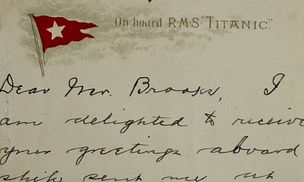 On board R.M.S "TITANIC."
Dear Mr. Brooks, I
am delighted to receive
your greetings aboard
ship sent me at